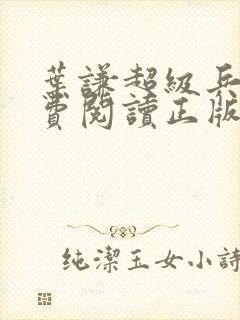 葉謙超級兵
費閱讀正版
純潔玉女小詩